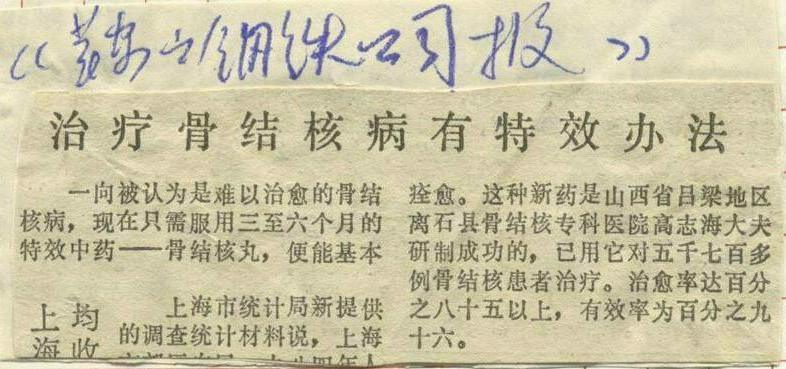 《莱芜钢铁公司报》
治疗骨结核病有特效办法
一向被认为是难以治愈的骨结
核病，现在只需服用三至六个月的
特效中药——骨结核丸，便能基本
痊愈。这种新药是山西省吕梁地区
离石县骨结核专科医院高志海大夫
研制成功的，已用它对五千七百多
例骨结核患者治疗。治愈率达百分
之八十五以上，有效率为百分之九
十六。
上海
均收
上海市统计局新提供
的调查统计材料说，上海